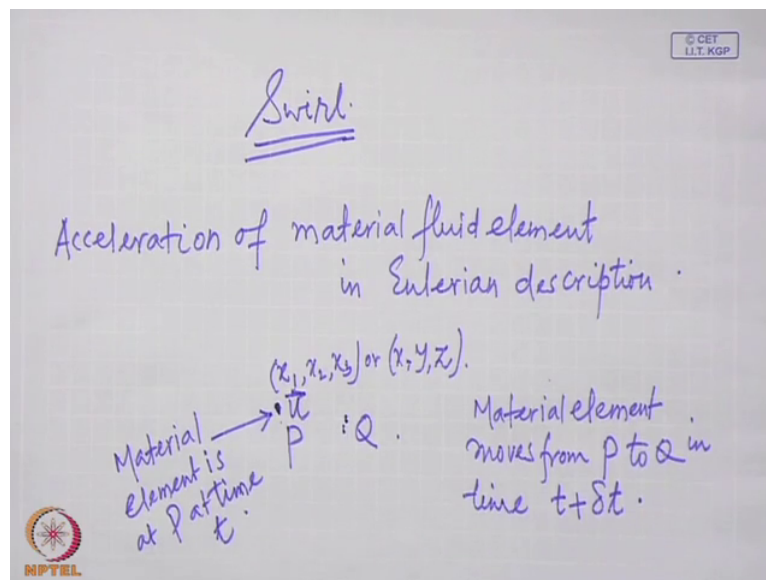 © CET
I.I.T. KGP
Swirl.
Acceleration of material fluid element
in Eulerian description.
(x₁, x₂, x₃) or (x, y, z).
u⃗
P
Q.
Material
element is
at P at time
t.
Material element
moves from P to Q in
time t+δt.
NPTEL